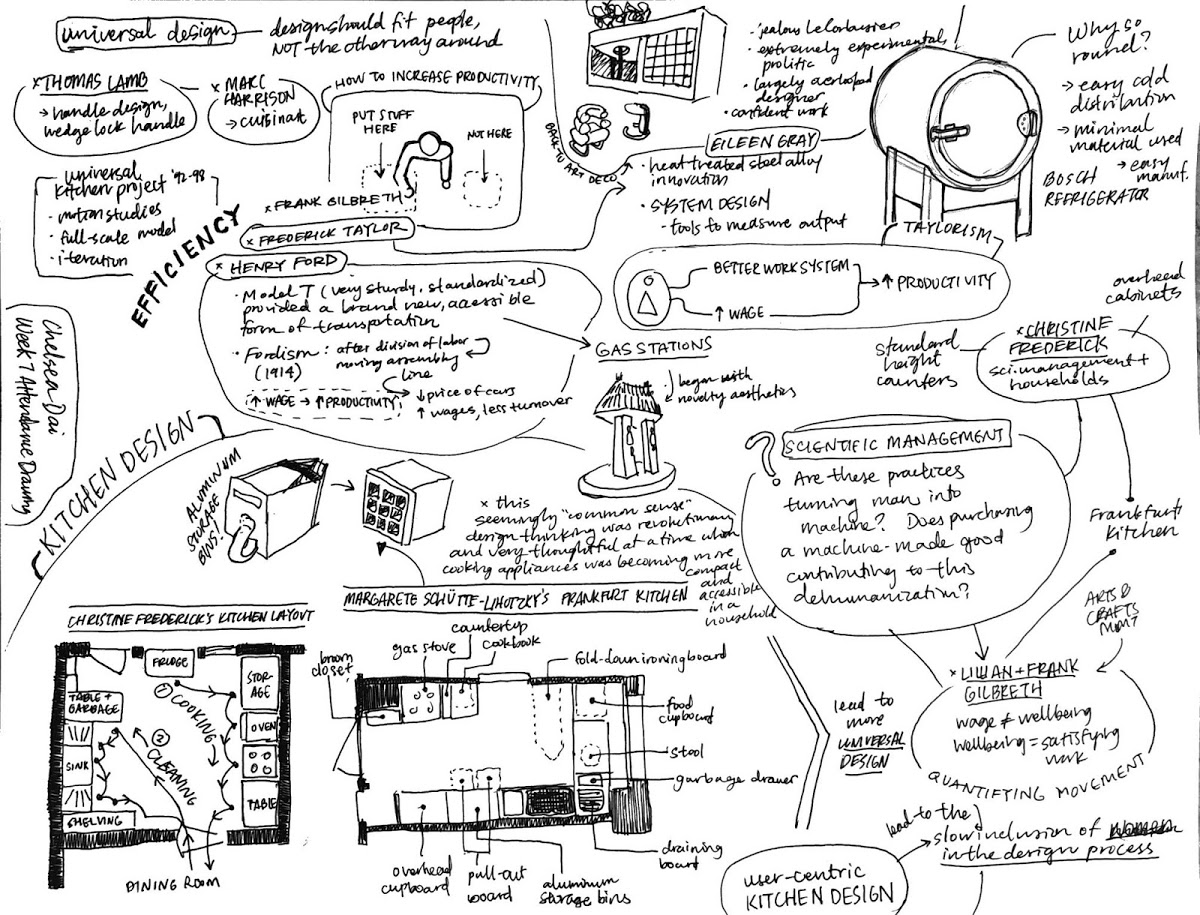 universal design
design should fit people,
NOT the other way around
× THOMAS LAMB
→ handle design,
wedge lock handle
× MARC
HARRISON
→ cuisinart
universal
kitchen project '92-98
· motion studies
· full-scale model
· iteration
EFFICIENCY
HOW TO INCREASE PRODUCTIVITY
PUT STUFF
HERE
NOT HERE
× FRANK GILBRETH
× FREDERICK TAYLOR
× HENRY FORD
· Model T (very sturdy, standardized)
provided a brand new, accessible
form of transportation
· Fordism : after division of labor
(1914) moving assembly
line
↑ WAGE → ↑ PRODUCTIVITY
↓ price of cars
↑ wages, less turnover
BACK TO ART DECO
· jealous Le Corbusier
· extremely experimental,
prolific
· largely
designer
· confident work
EILEEN GRAY
· heat treated steel alloy
innovation
· SYSTEM DESIGN
- tools to measure output
TAYLORISM
BETTER WORK SYSTEM
↑ WAGE
↑ PRODUCTIVITY
Why so
round?
→ easy cold
distribution
→ minimal
material used
→ easy
manuf.
BOSCH
REFRIGERATOR
GAS STATIONS
began with
novelty aesthetics
overhead
cabinets
× CHRISTINE
FREDERICK
sci. management +
households
standard
height
counters
Frankfurt
Kitchen
? SCIENTIFIC MANAGEMENT
Are these practices
turning man into
machine? Does purchasing
a machine-made good
contributing to this
dehumanization?
ARTS &
CRAFTS
MVMT
× LILLIAN + FRANK
GILBRETH
wage ≠ wellbeing
wellbeing = satisfying
work
QUANTIFYING MOVEMENT
lead to
more
UNIVERSAL
DESIGN
user-centric
KITCHEN DESIGN
lead to the
slow inclusion of
in the design process
Chelsea Dai
Week 7 Attendance Drawing
KITCHEN DESIGN
ALUMINUM
STORAGE
BINS!
× this
seemingly "common sense"
design thinking was revolutionary
and very thoughtful at a time when
cooking appliances was becoming more
compact
and
accessible
in a
household
MARGARETE SCHÜTTE-LIHOTZKY'S FRANKFURT KITCHEN
broom
closet
gas stove
countertop
cookbook
fold-down ironing board
food
cupboard
stool
garbage drawer
draining
board
aluminum
storage bins
pull-out
board
overhead
cupboard
CHRISTINE FREDERICK'S KITCHEN LAYOUT
FRIDGE
STOR-
AGE
TABLE +
GARBAGE
① COOKING
OVEN
② CLEANING
SINK
TABLE
SHELVING
DINING ROOM